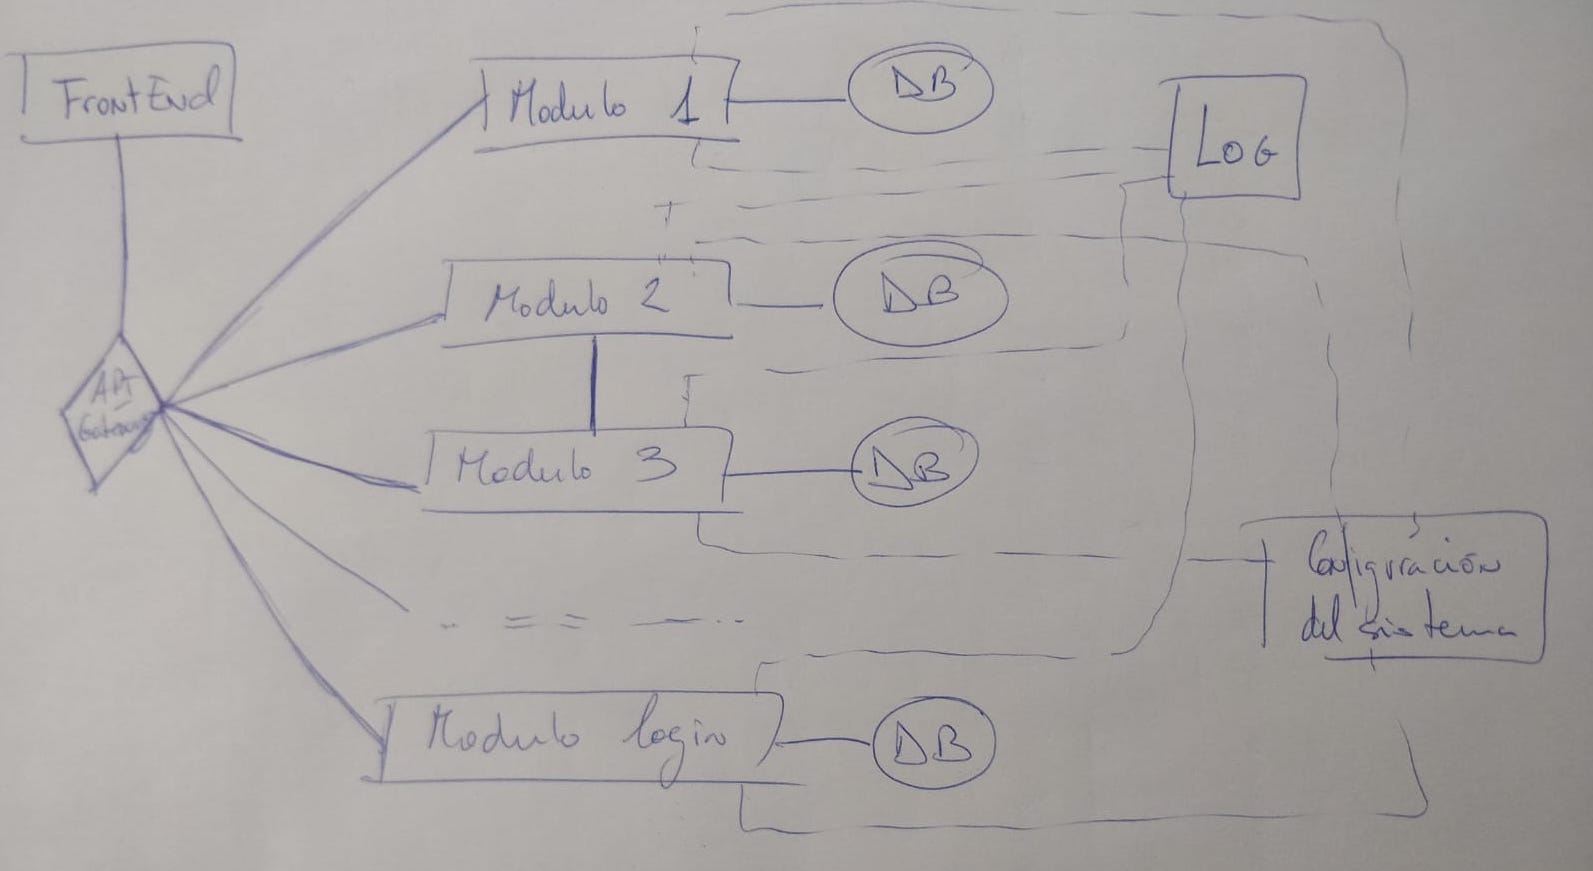 FrontEnd
API
Gateway
Modulo 1
DB
Log
Modulo 2
DB
Modulo 3
DB
Configuración
del sistema
Modulo login
DB